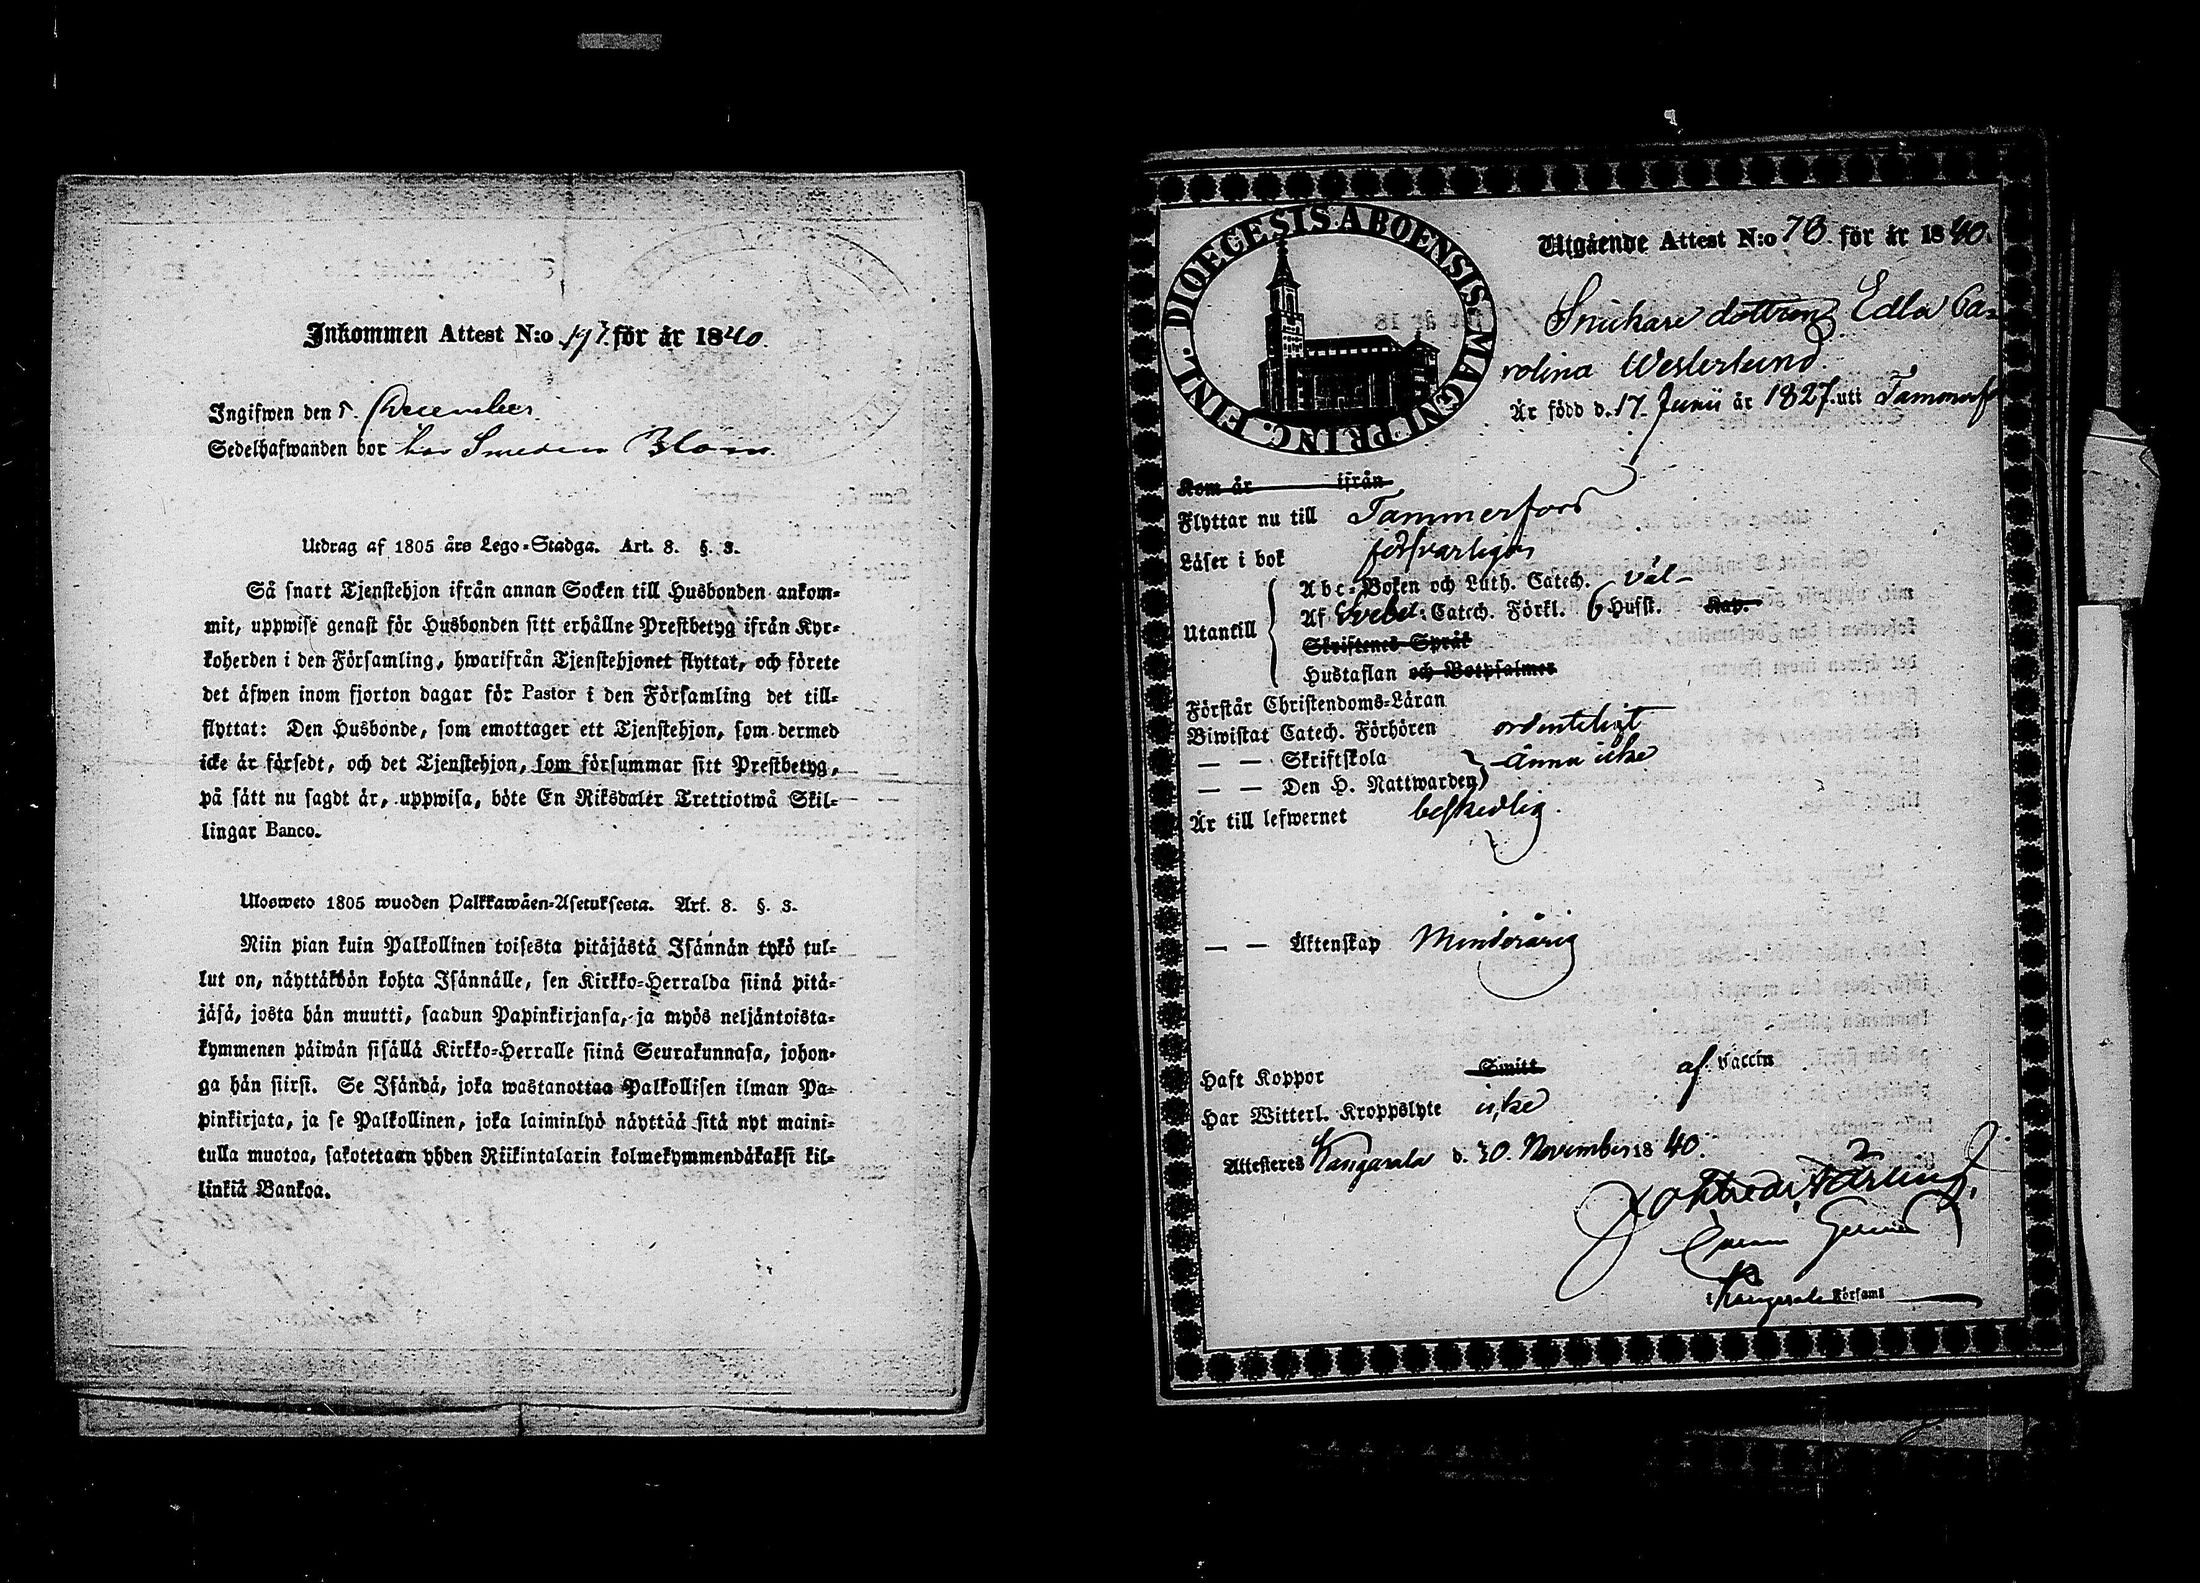 Inkommen Attest N:o 197. för år 1840.
Ingifwen den 5. December
Sedelhafwanden bor hos Smeden Blom.
Utdrag af 1805 års Lego-Stadga. Art. 8. §. 3.
Så snart Tjenstehjon ifrån annan Socken till Husbonden ankom=
mit, uppwise genast för Husbonden sitt erhållne Prestbetyg ifrån Kyr=
koherden i den Församling, hwarifrån Tjenstehjonet flyttat, och förete
det äfwen inom fjorton dagar för Pastor i den Församling det till=
flyttat: Den Husbonde, som emottager ett Tjenstehjon, som dermed
icke är försedt, och det Tjenstehjon, som försummar sitt Prestbetyg,
på sätt nu sagdt är, uppwisa, böte En Riksdaler Trettiotwå Skil=
lingar Banco.
Ulosweto 1805 wuoden Palkkawäen-Asetuksesta. Art. 8. §. 3.
Niin pian kuin Palkollinen toisesta pitäjästä Isännän tykö tul=
lut on, näyttäköön kohta Isännälle, sen Kirkko=Herralda siinä pitä=
jäsä, josta hän muutti, saadun Papinkirjansa, ja myös neljäntoista=
kymmenen päiwän sisällä Kirkko=Herralle siinä Seurakunnasa, johon=
ga hän siirsi. Se Isändä, joka wastanottaa Palkollisen ilman Pa=
pinkirjata, ja se Palkollinen, joka laiminlyö näyttää sitä nyt maini=
tulla muotoa, sakotetaan yhden Riikintalarin kolmekymmendäkaksi kil=
linkiä Bankoa.
DIOECESIS ABOENSIS MAGNI PRINC. FINL.
Utgående Attest N:o 78. för år 1840.
Snickare dottren Edla Ca=
rolina Westerlund.
Är född d. 17. Junii år 1827. uti Tammerf
Kom år ifrån
Flyttar nu till Tammerfors
Läser i bok försvarligen
Abc=Boken och Luth. Catech. väl
Utantill Af Svebel. Catech. Förkl. Hufst. Kap.
Skriftenes Språk
Hustaflan och Botpsalmer
Förstår Christendoms=Läran
Biwistat Catech. Förhören ordenteligt
— — Skriftskola ännu icke
— — Den H. Nattwarden
Är till lefwernet beskedlig.
— — Äktenskap Minderårig
Haft Koppor Smitt af Vaccin
Har Witterl. Kroppslyte icke
Attesteras Kangasala d. 30. November 1840.
i Kangasala Församl